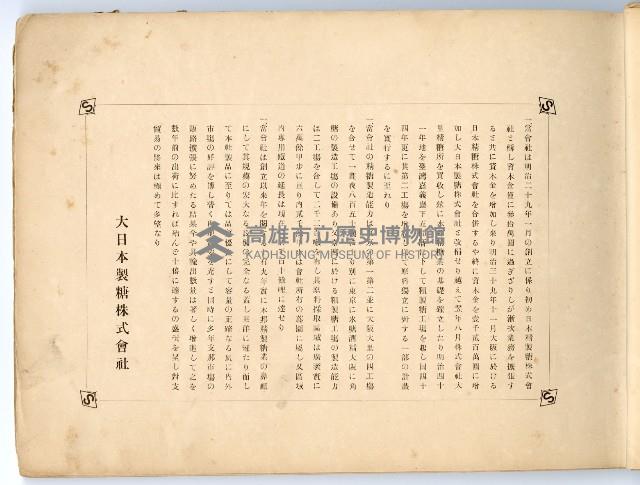 一當會社は明治二十九年一月の創立に係り初め日本精製糖株式會
社と稱し資本金僅に參拾萬圓に過ぎざりしが漸次業務を擴張す
ると共に資本金を增加し來り明治三十九年十一月大阪に於ける
日本精糖株式會社を合併するや終に資本金を壹千貳百萬圓に增
加し大日本製糖株式會社と改稱せり越えて翌年八月株式會社大
里精糖所を買收し玆に本邦精糖業の基礎を確立したり明治四十
一年地を臺灣嘉義廳下 に して粗製糖工場を起し同四十
四年更に其第二工場を 原料獨立に對する一部の計畫
を實行するに至れり
一當會社の精糖製造能力は 第一第二並に大阪大里の四工場
を合せて一晝夜八百五十 り別に東京に氷糖 大阪に角
糖の製造工場の設備あり に於ける粗製糖工場の製造能力
は二工場を合して二千二 有し其原料採取區域は廣袤實に
六萬餘甲步に亘り內貳千 は會社所有の蔗園に屬し又區域
內專用鐵道の延長は現在 百十餘哩に達せり
一當會社は創立以來年を閱 有九年實に本邦精製糖業の鼻祖
にして其規模の宏大なる 全なる蓋し東洋に冠たり而し
て本社製品に至りては品 優 にして容量の正確なる夙に內外
市場の好評を博し普く 充す と同時に多年支那市場の
販路擴張に努めたる結果今や其輸出數量は著しく增進して之を
數年前の出荷に比すれば殆んど十倍に達するの盛況を呈し對支
貿易の將來は極めて多望なり
大日本製糖株式會社
高雄市立歷史博物館
KAOHSIUNG MUSEUM OF HISTORY